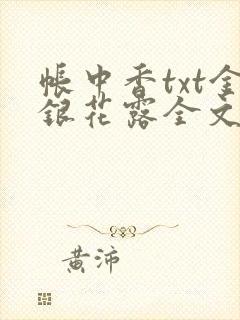 帐中香txt金
银花露全文
黄沛